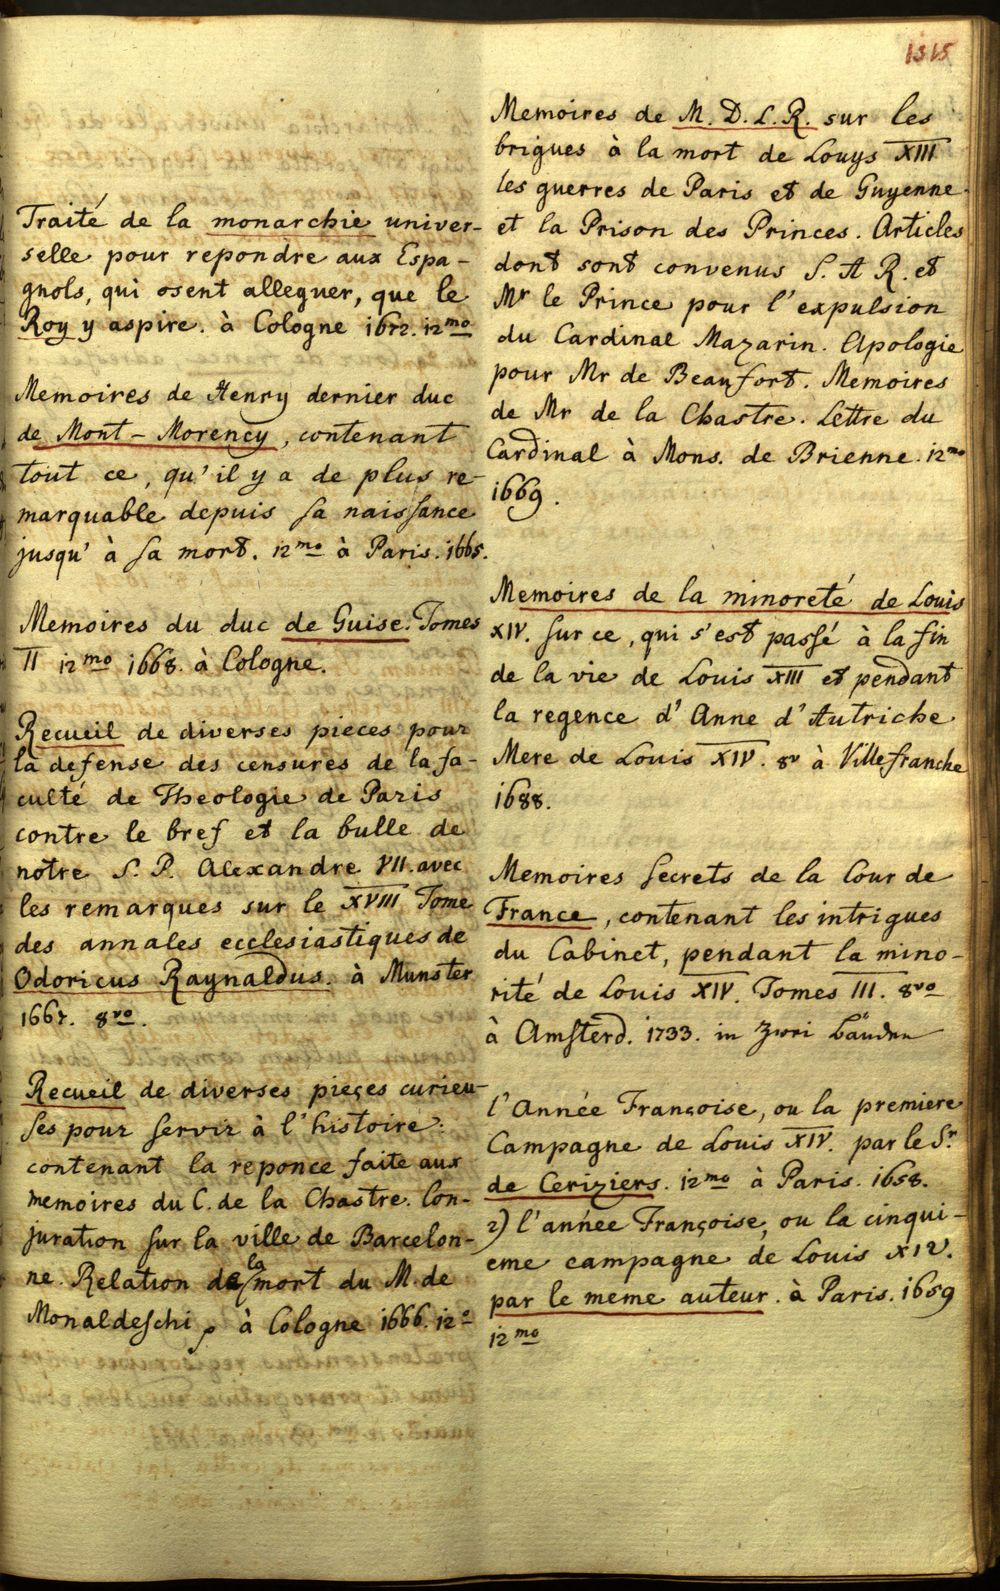 1315
Traité de la monarchie univer-
selle pour repondre aux Espa-
gnols, qui osent alleguer, que le
Roy y aspire. à Cologne 1672. 12mo
Memoires de Henry dernier duc
de Mont-Morency, contenant
tout ce, qu'il y a de plus re-
marquable depuis sa naissance
jusqu' à sa mort. 12mo à Paris. 1665.
Memoires du duc de Guise. Tomes
II 12mo 1668. à Cologne.
Recueil de diverses pieces pour
la defense des censures de la fa-
culté de Theologie de Paris
contre le bref et la bulle de
nôtre S. P. Alexandre VII. avec
les remarques sur le XVIII Tome
des annales ecclesiastiques de
Odoricus Raynaldus. à Munster
1667. 8vo.
Recueil de diverses pieçes curieu-
ses pour servir à l'histoire:
contenant la reponce faite aux
memoires du C. de la Chastre. Con-
juration sur la ville de Barcelon-
ne. Relation de la mort du M. de
Monaldeschi, à Cologne 1666. 12o
Memoires de M. D. L. R. sur les
brigues à la mort de Louys XIII
les guerres de Paris et de Guyenne
et la Prison des Princes. Articles
dont sont convenus S. A R. et
Mr le Prince pour l'expulsion
du Cardinal Mazarin. Apologie
pour Mr de Beaufort. Memoires
de Mr de la Chastre. Lettre du
Cardinal à Mons. de Brienne. 12mo
1669.
Memoires de la minoreté de Louis
XIV. sur ce, qui s'est passé à la fin
de la vie de Louis XIII et pendant
la regence d' Anne d' Autriche
Mere de Louis XIV. 8v à Villefranche
1688.
Memoires secrets de la Cour de
France, contenant les intrigues
du Cabinet, pendant la mino-
rité de Louis XIV. Tomes III. 8vo
à Amsterd. 1733. in zwei bänden
l'Année Françoise, ou la premiere
Campagne de Louis XIV. par le Sr
de Ceriziers. 12mo à Paris. 1658.
2) l'année Françoise, ou la cinqui-
eme campagne de Louis XIV.
par le meme auteur. à Paris. 1659
12mo